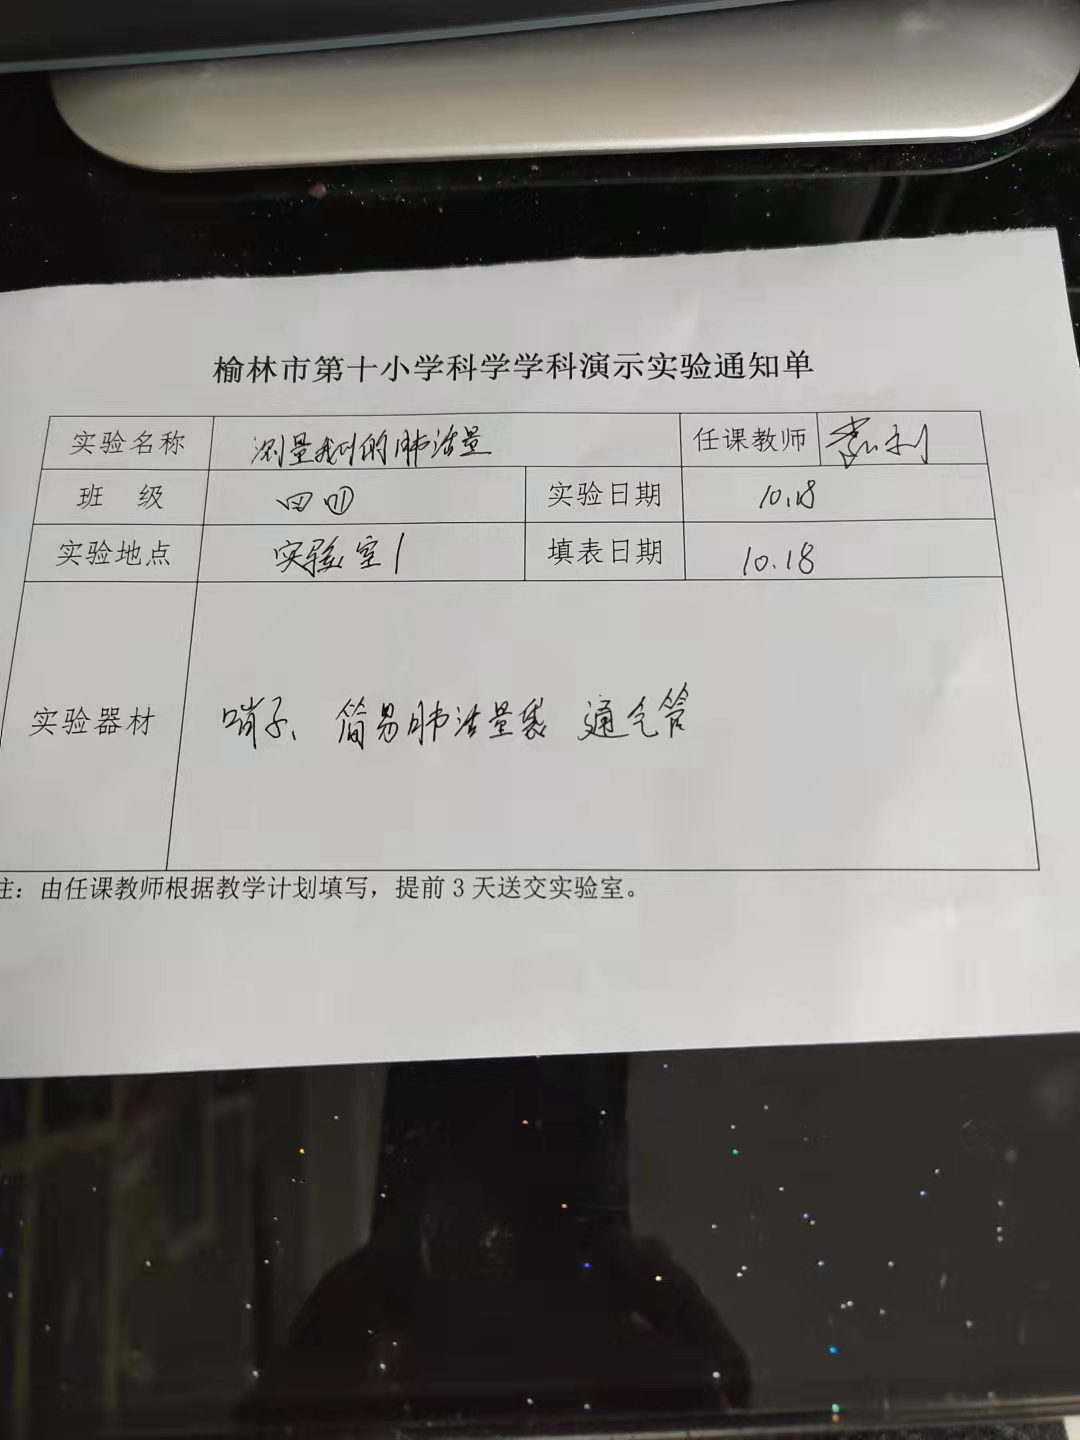 榆林市第十小学科学学科演示实验通知单
实验名称 测量我们的肺活量 任课教师
班 级 四 实验日期 10.18
实验地点 实验室1 填表日期 10.18
实验器材 哨子、简易肺活量袋 通气管
注：由任课教师根据教学计划填写，提前 3 天送交实验室。